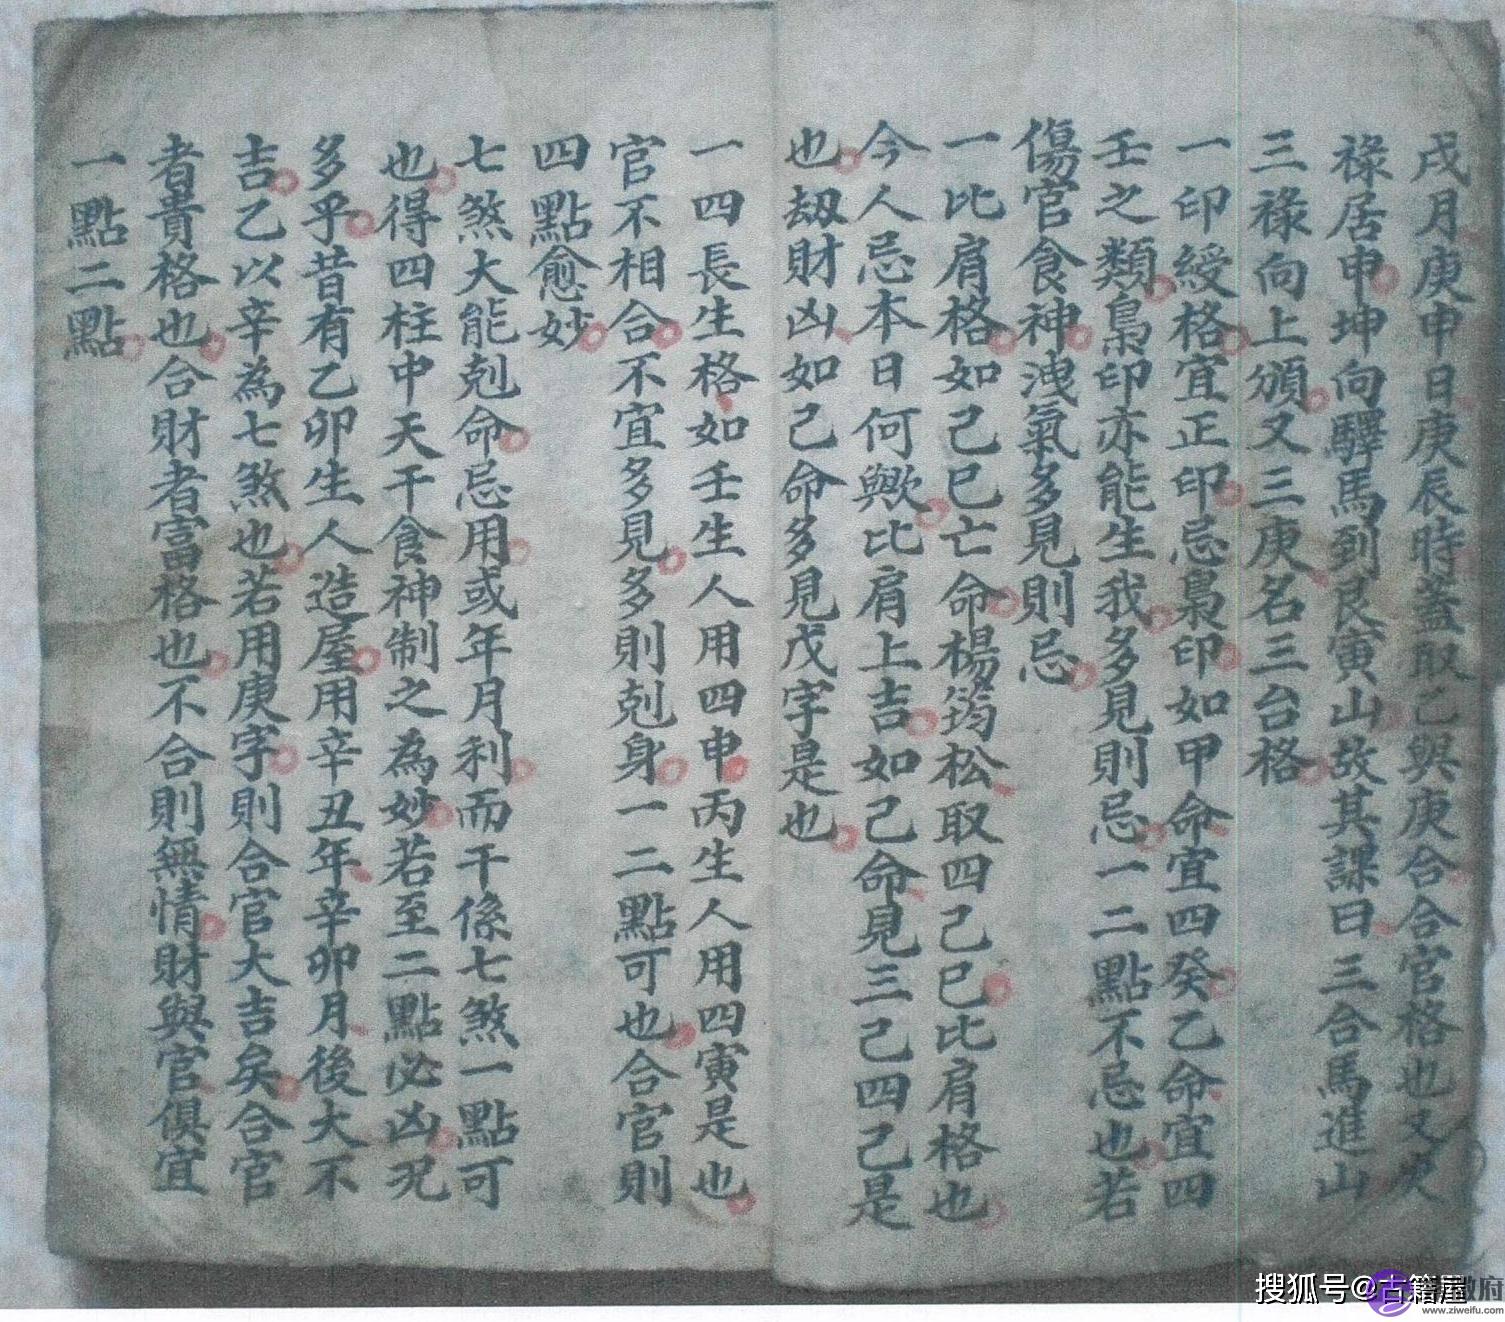 戌月庚申日庚辰時蓋取乙與庚合合官格也又庚
祿居申坤向驛馬到艮寅山故其課曰三合馬進山
三祿向上頒又三庚名三台格
一印綬格宜正印忌梟印如甲命宜四癸乙命宜四
壬之類梟印亦能生我多見則忌一二點不忌也若
傷官食神洩氣多見則忌
一比肩格如己巳亡命楊筠松取四己巳比肩格也
今人忌本日何歟比肩上吉如己命見三己四己是
也劫財凶如己命多見戊字是也
一四長生格如壬生人用四申丙生人用四寅是也
官不相合不宜多見多則剋身一二點可也合官則
四點愈妙
七煞大能剋命忌用或年月利而干係七煞一點可
也得四柱中天干食神制之為妙若至二點必凶况
多乎昔有乙卯生人造屋用辛丑年辛卯月後大不
吉乙以辛為七煞也若用庚字則合官大吉矣合官
者貴格也合財者富格也不合則無情財與官俱宜
一點二點
搜狐号@古籍屋
www.ziweifu.com